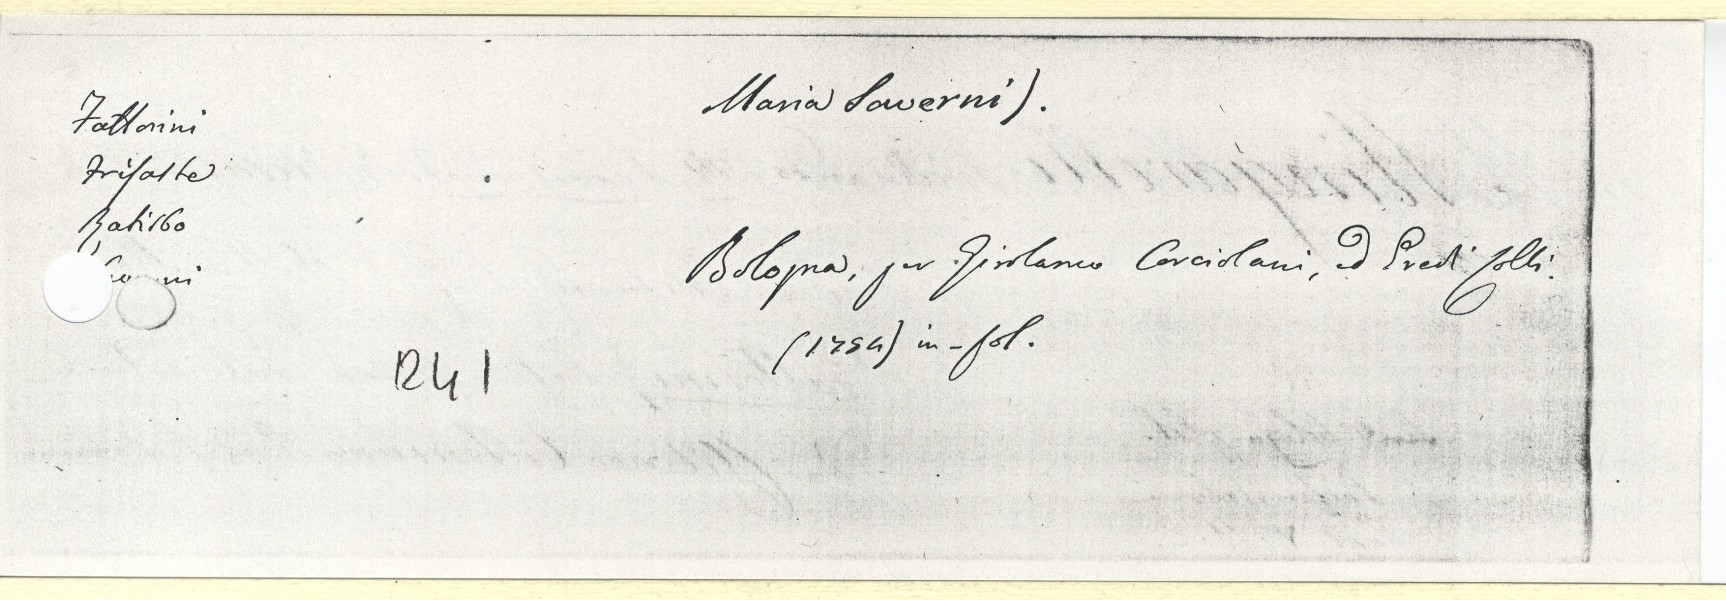 Maria Saverni).
Fattorini
Trisalte
Ratisbo
Bologna, per Girolamo Corciolani, ed Eredi Colli.
(1754) in-fol.
R41